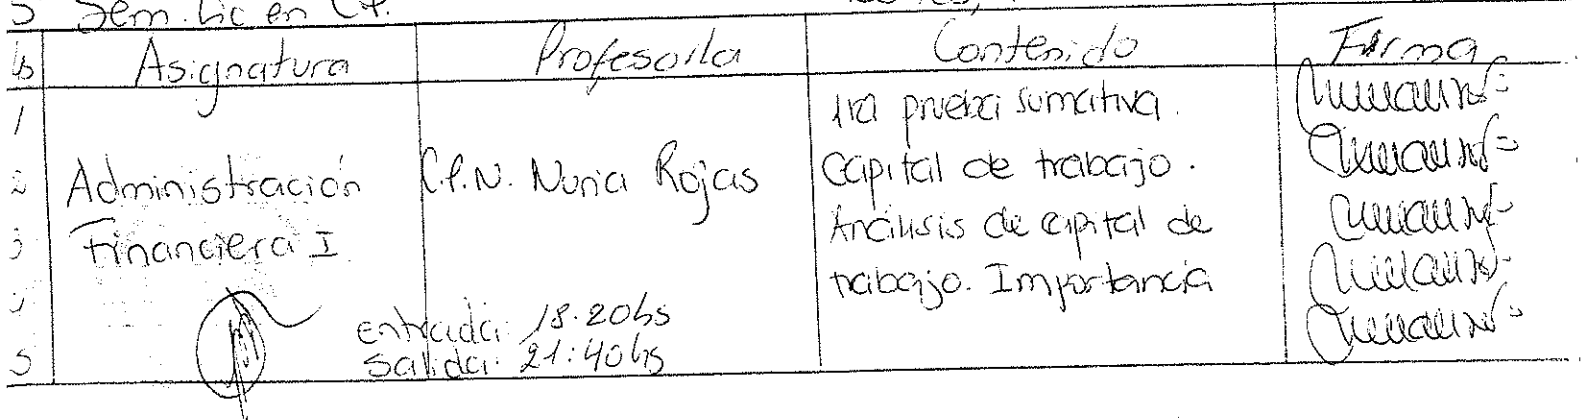 5 Sem. Lic en C.P.
Hs Asignatura Profesor/a Contenido Firma
1 1ra prueba sumativa.
2 Administración C.P.N. Nuria Rojas Capital de trabajo.
3 Financiera I Análisis de capital de
4 trabajo. Importancia
entrada: 18:20hs
5 salida: 21:40hs